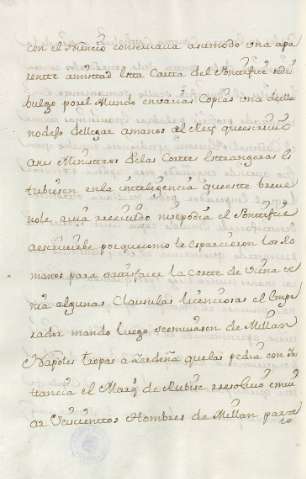 con el Nuncio conservava asumodo una apa
rente amistad esta Carta del Pontifice sedi
bulgo por el Mundo embarias Copias una de ellas
nodexo dellegar amanos del Rey
a los Ministros delas Cortes Estrangeras Es
tubiesen enla inteligencia que este breve
nole avia recivido nipodia el Pontifice
aescrivirle porque como le esparcieron los Ro
manos para satisfacer la Corte de Viena te
nia algunas Clausulas licenciosas el Empe
rador mando luego seembiasen de Millan
Napoles tropas a Zerdeña quelas pedia con ins
tancia el Marq.s de Rubise resolvio embi
ar Hombres de Millan